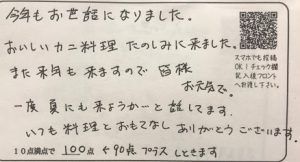 今年もお世話になりました。
おいしいカニ料理 たのしみに来ました。
また来年も来ますので 皆様
お元気で。
一度 夏にも来ようか…と話してます。
いつも料理とおもてなし ありがとうございます。
10点満点で 100点 ←90点 プラス しときます
スマホでも投稿
OK！チェック欄
記入後フロント
へお渡し下さい。